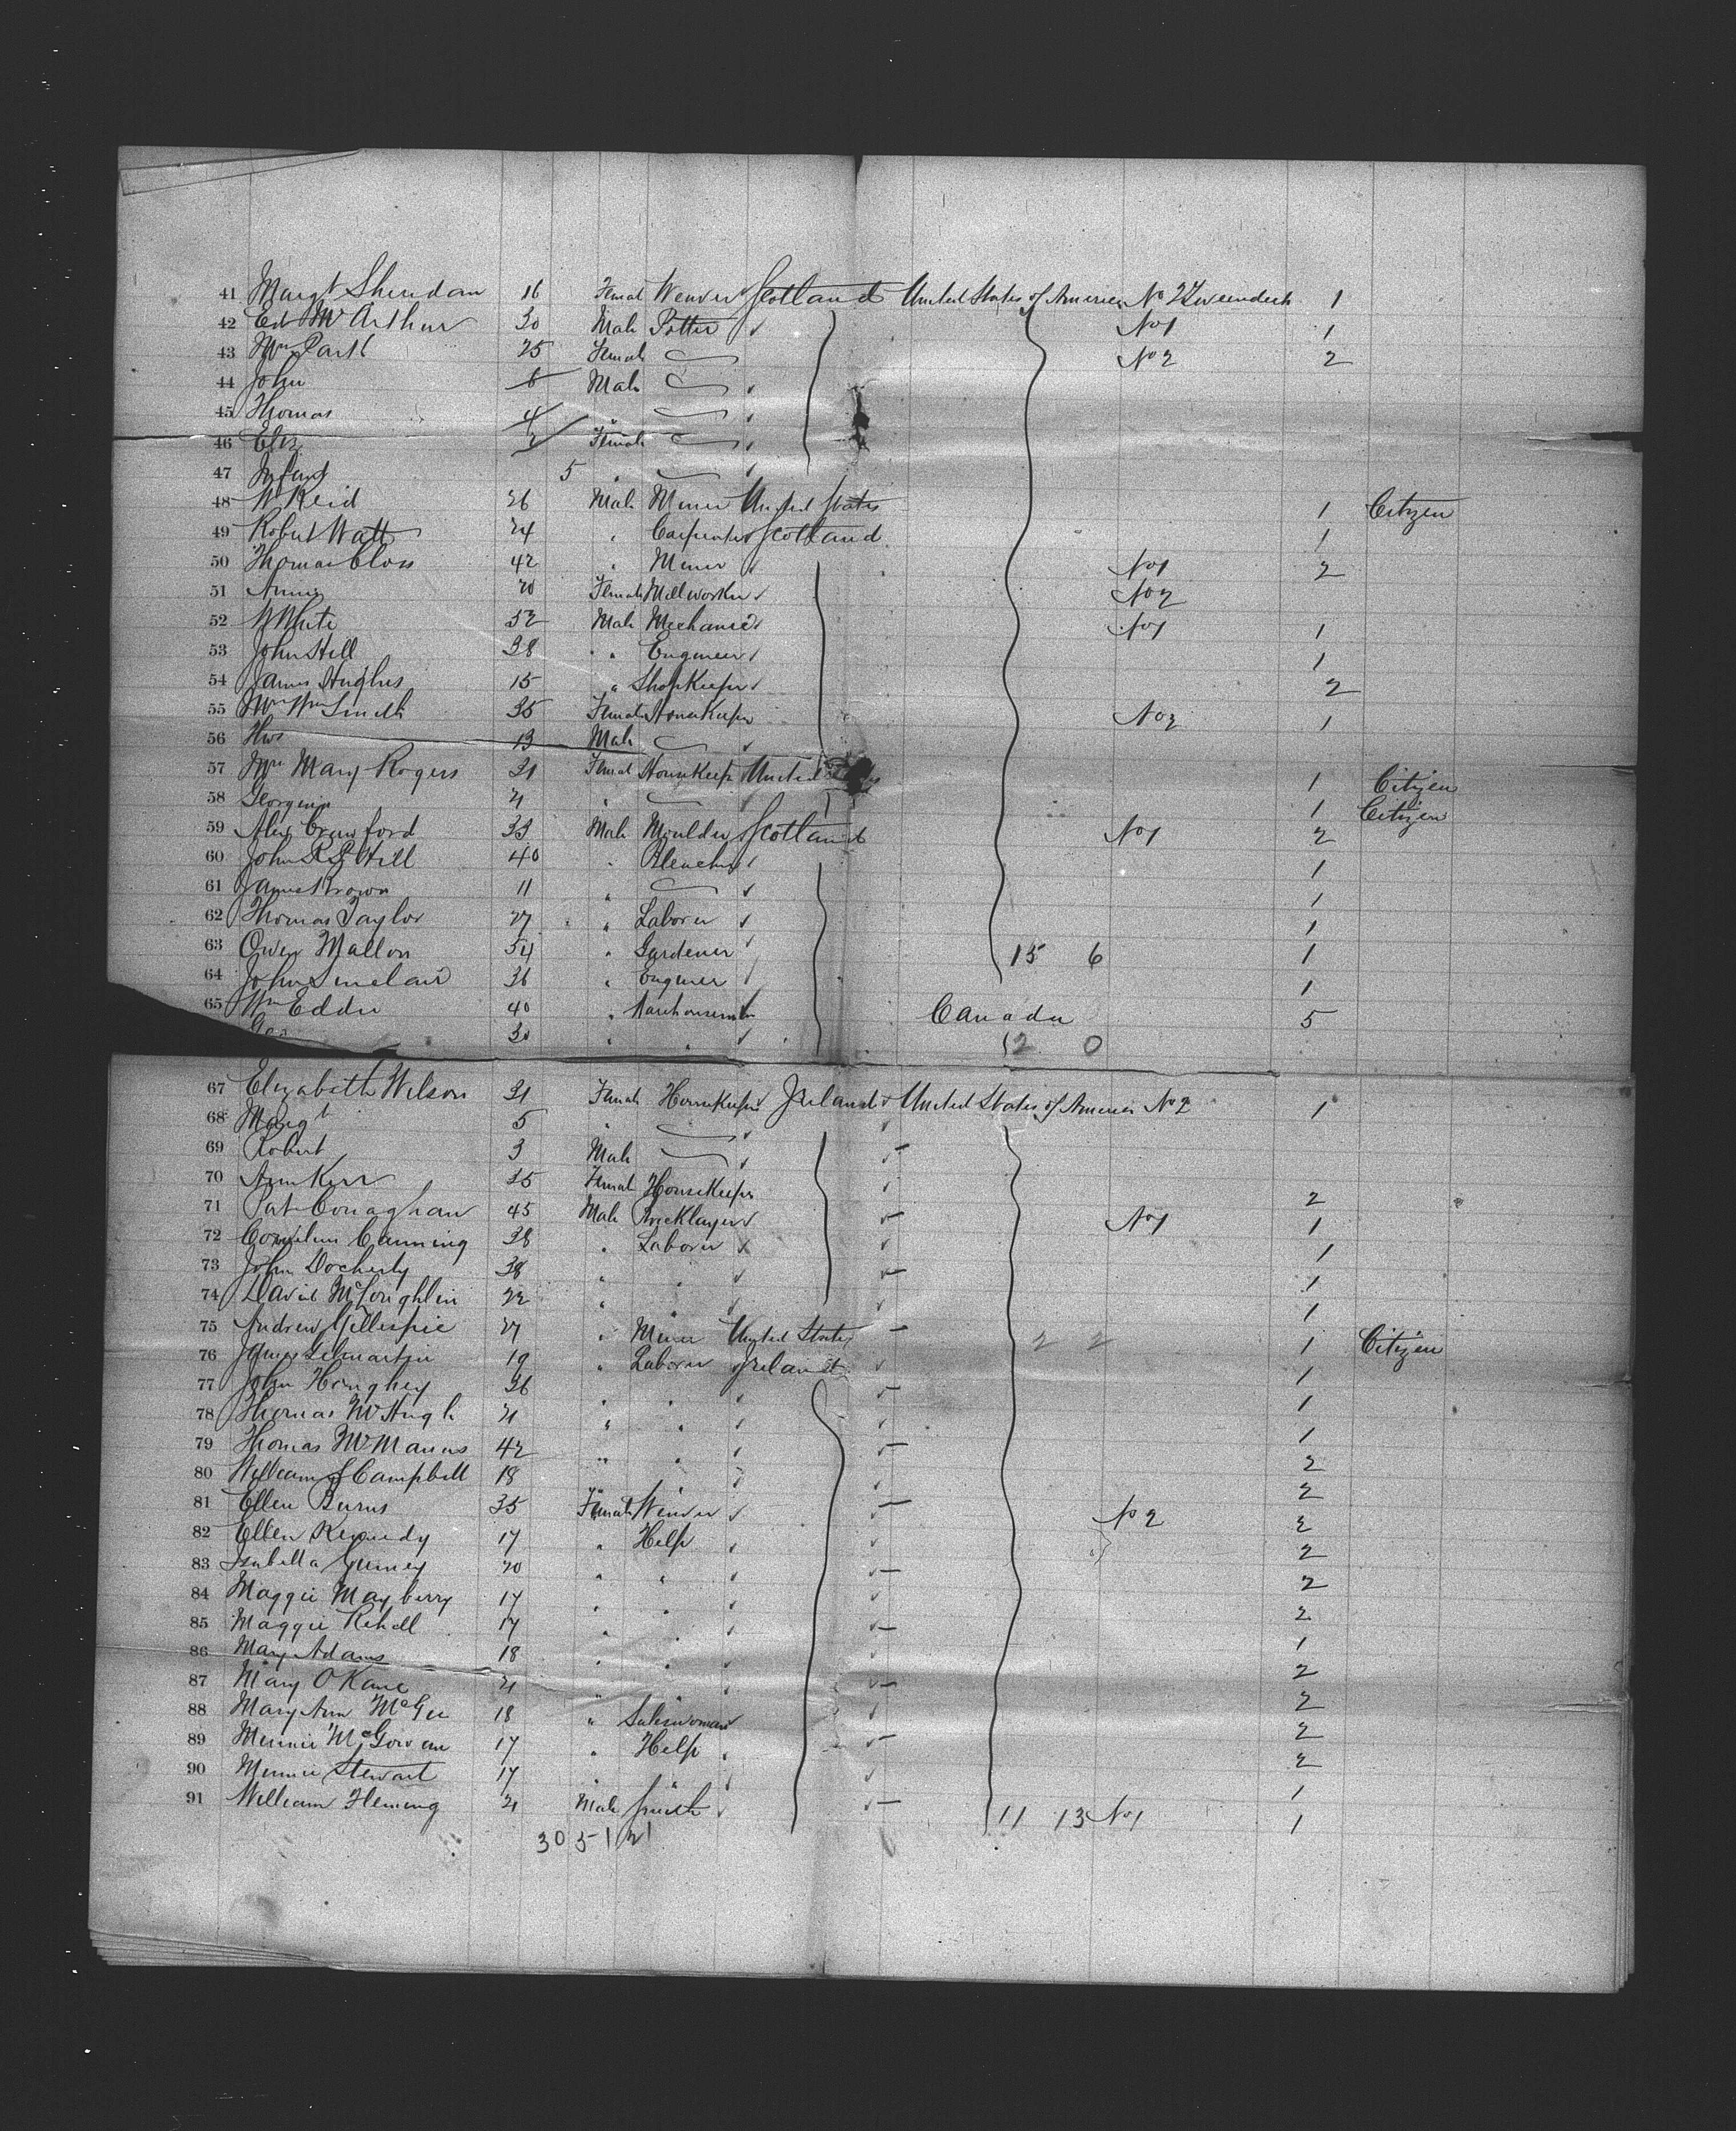 41 Margt Sheridan 16 Female Weaver Scotland United States of America No 2 Tweendeck 1
42 Ed McArthur 30 Male Potter No 1 1
43 Mrs 25 Female No 2 2
44 John 6 Male
45 Thomas 4 "
46 Eliz 2 Female
47 Infant 5 "
48 W Reid 26 Male Miner United States 1 Citizen
49 Robert Watt 24 " Carpenter Scotland 1
50 Thomas Closs 42 " Miner No 1 2
51 Annie 20 Female Millworker No 2
52 W White 32 Male Mechanic No 1 1
53 John Hill 38 " " Engineer 1
54 James Hughes 15 " Shopkeeper 2
55 Mrs Wm Smith 35 Female Housekeeper No 2 1
56 13 Male
57 Mrs Mary Rogers 31 Female Housekeep United States 1 Citizen
58 Georgina 4 " 1 Citizen
59 Alex Crawford 33 Male Moulder Scotland No 1 2
60 John Hill 40 " Bleacher 1
61 James Brown 11 " 1
62 Thomas Taylor 27 " Laborer 1
63 Owen Mallon 54 " Gardener 15 6 1
64 John Sinclair 36 " Engineer 1
65 Wm Eddie 40 " Warehouseman Canada 5
Geo 30 " " 2 0
67 Elizabeth Wilson 31 Female Housekeeper Ireland United States of America No 2 1
68 Margt 5 "
69 Robert 3 Male
70 Ann Kerr 35 Female Housekeeper 2
71 Pat Conaghan 45 Male Bricklayer No 1 1
72 Cornelius Canning 38 " Laborer 1
73 John Docherty 38 " " 1
74 David McLoughlin 22 " " 1
75 Andrew Gillespie 27 " Miner United States 2 2 1 Citizen
76 James Gilmartin 19 " Laborer Ireland 1
77 John Haughey 36 " " 1
78 Thomas McHugh 21 " " 1
79 Thomas McManus 42 " " 2
80 William J Campbell 18 " " 2
81 Ellen Burns 35 Female Weaver No 2 2
82 Ellen Kennedy 17 " Help 2
83 Isabella 20 " " 2
84 Maggie Mayberry 17 " " 2
85 Maggie 17 " " 1
86 Mary Adams 18 " " 2
87 Mary O'Kane 21 " " 2
88 Mary Ann McGee 18 " Saleswoman 2
89 Minnie McGowan 17 " Help 2
90 Minnie Stewart 17 " " 1
91 William Fleming 21 Male Smith 11 13 No 1 1
30 5 12